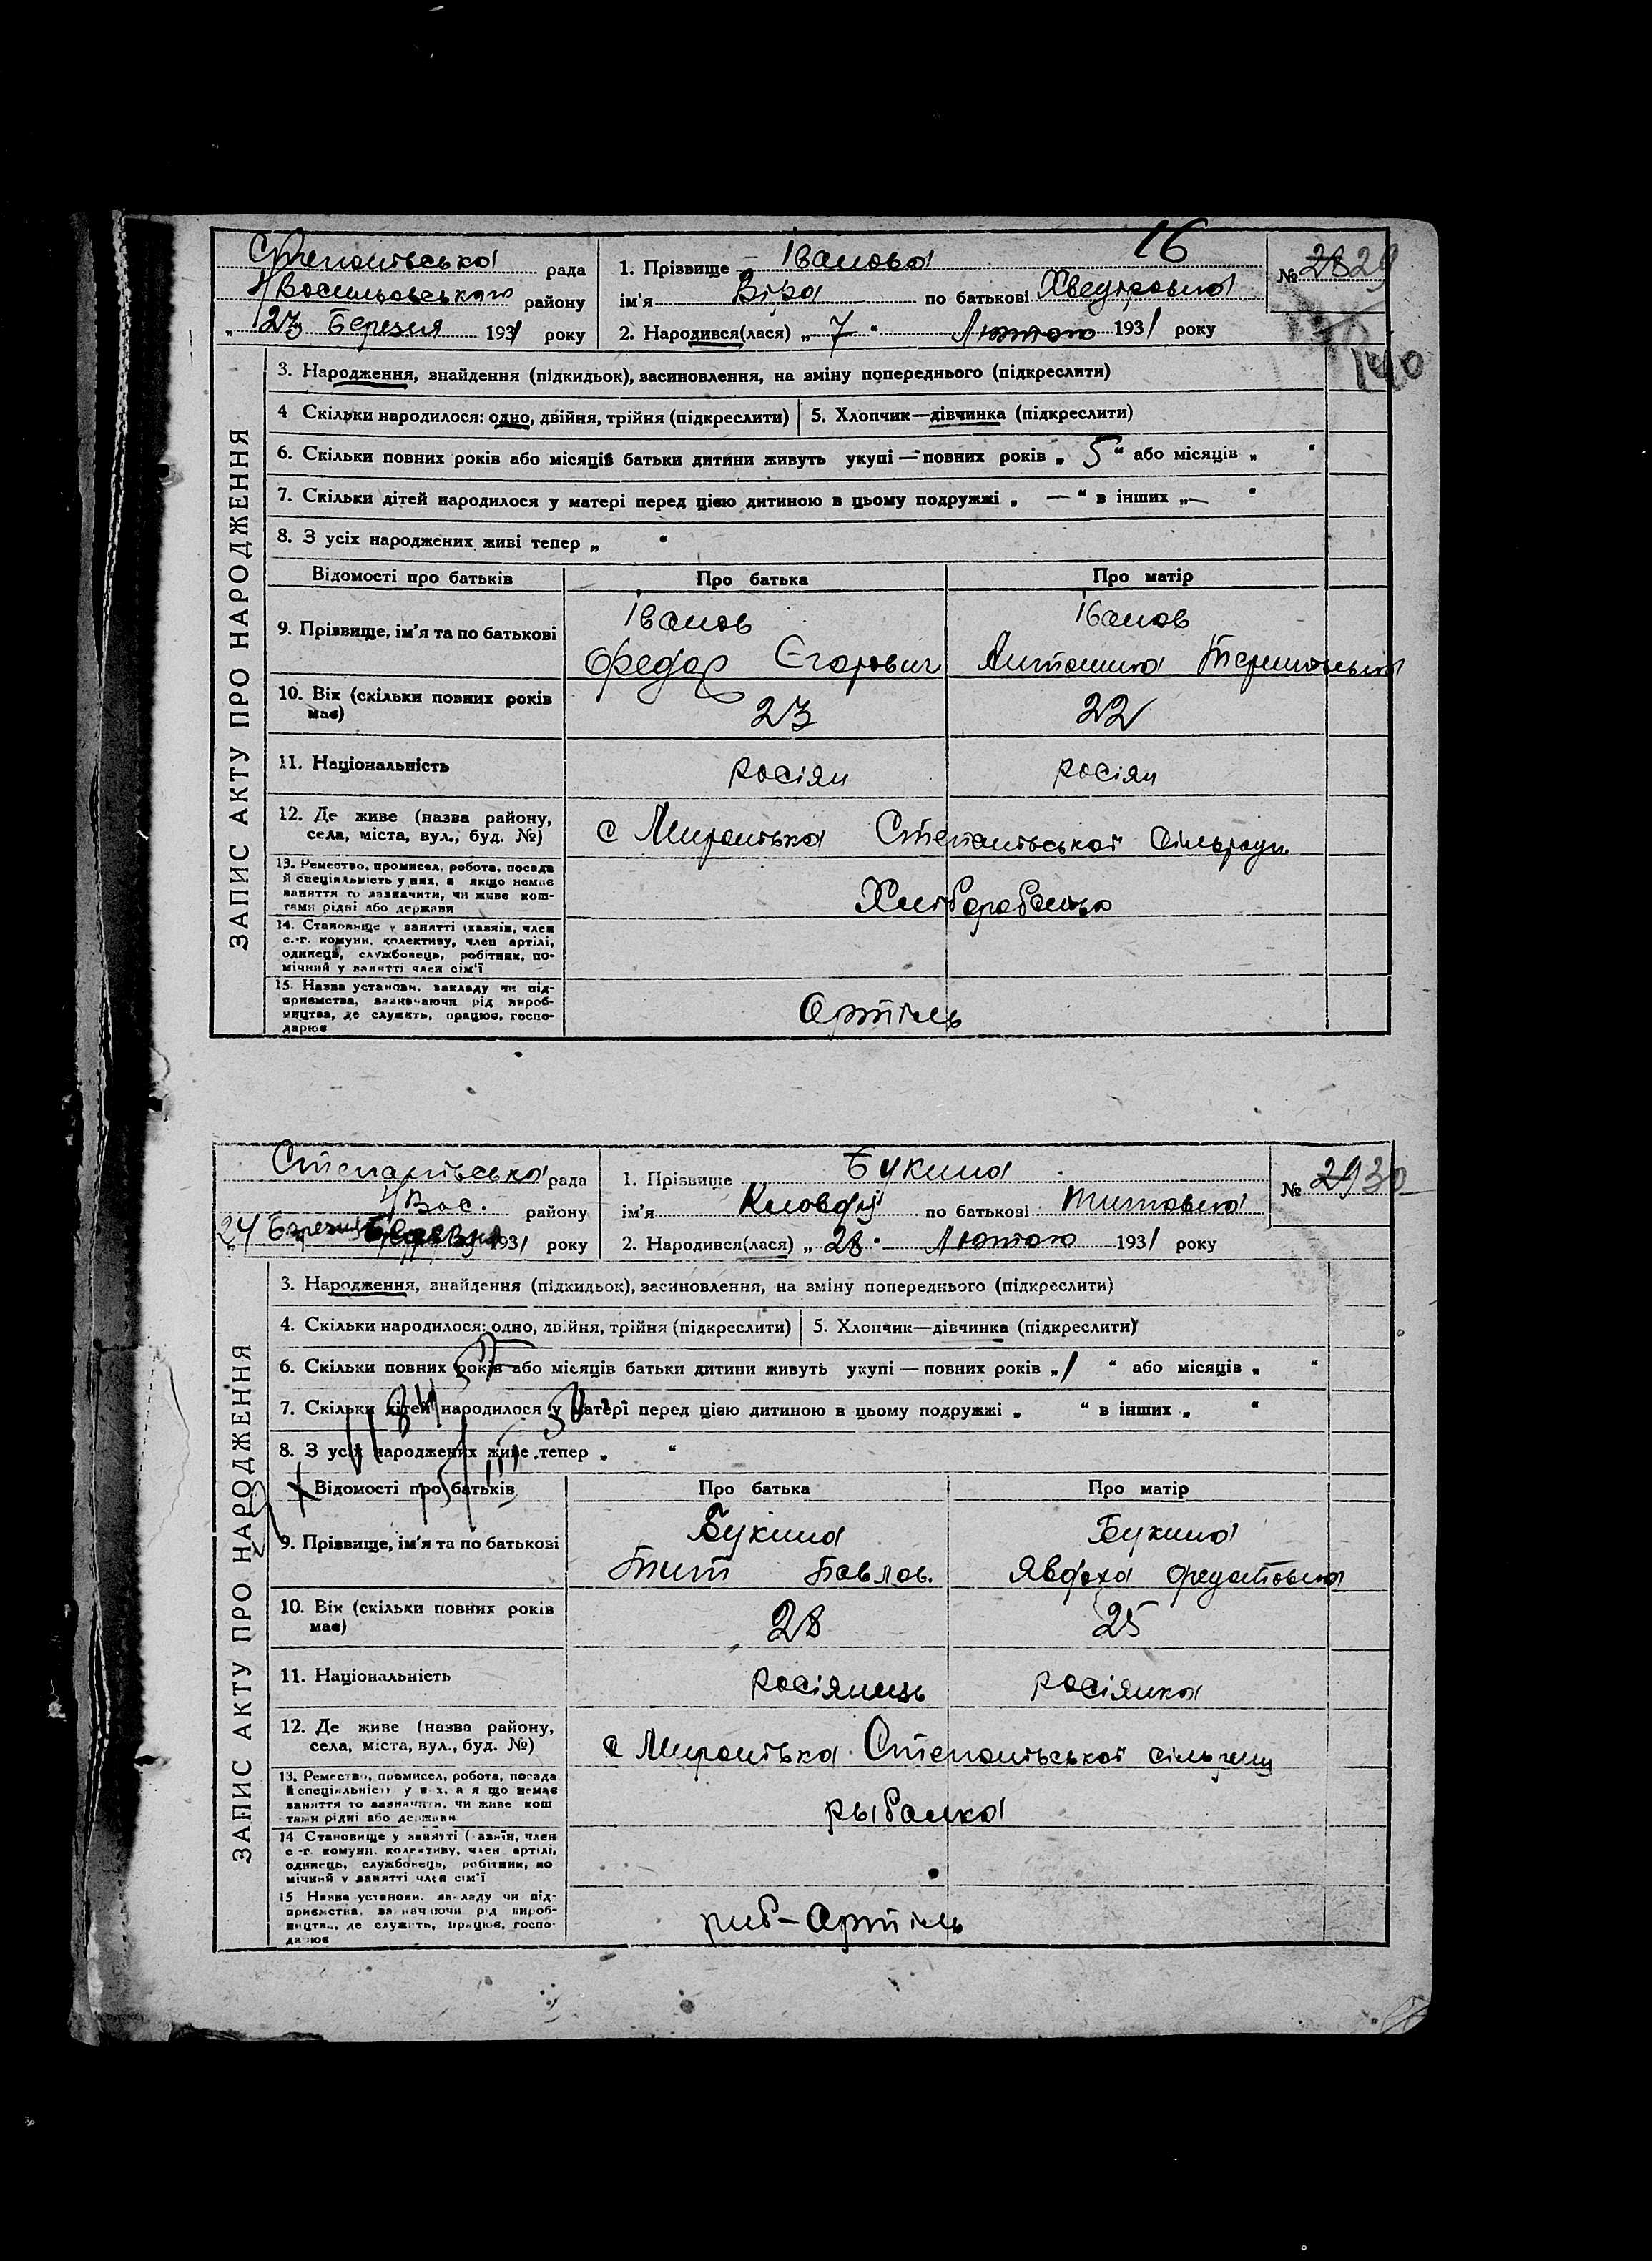 16
Степанівська рада
1. Прізвище Іванова
№ 28 29
Н Васильовського району
ім'я Віра по батькові Хведоровна
„ 23 Березня 1931 року
2. Народився(лася) „ 7 “ Лютого 1931 року
140
ЗАПИС АКТУ ПРО НАРОДЖЕННЯ
3. Народження, знайдення (підкидьок), засиновлення, на зміну попереднього (підкреслити)
4 Скільки народилося: одно, двійня, трійня (підкреслити) 5. Хлопчик—дівчинка (підкреслити)
6. Скільки повних років або місяців батьки дитини живуть укупі — повних років „ 5 “ або місяців „ “
7. Скільки дітей народилося у матері перед цією дитиною в цьому подружжі „ — “ в інших „ — “
8. З усіх народжених живі тепер „ “
Відомості про батьків Про батька Про матір
9. Прізвище, ім'я та по батькові
Іванов Іванов
Федор Єгорович Антонина
10. Вік (скільки повних років має) 23 22
11. Національність росіян росіян
12. Де живе (назва району, села, міста, вул., буд. №)
с Миронівка Степанівської сільради
13. Ремество, промисел, робота, посада й спеціяльність у них, а якщо немає заняття то зазначити, чи живе коштами рідні або держави
Хліборобсько
14. Становище у занятті (хазяїн, член с.-г. комуни, колективу, член артілі, одинець, службовець, робітник, помічний у занятті член сім'ї
15. Назва установи, закладу чи підприємства, зазначаючи рід виробництва, де служить, працює, господарює
Артіль
Степанівська рада
1. Прізвище Букина
№ 29 30
Н Вас. району
ім'я Клавдія по батькові Титовна
24 Березня 1931 року
2. Народився(лася) „ 28 “ Лютого 1931 року
ЗАПИС АКТУ ПРО НАРОДЖЕННЯ
3. Народження, знайдення (підкидьок), засиновлення, на зміну попереднього (підкреслити)
4. Скільки народилося: одно, двійня, трійня (підкреслити) 5. Хлопчик—дівчинка (підкреслити)
6. Скільки повних років або місяців батьки дитини живуть укупі — повних років „ 1 “ або місяців „ “
7. Скільки дітей народилося у матері перед цією дитиною в цьому подружжі „ “ в інших „ “
8. З усіх народжених живе тепер „ “
Відомості про батьків Про батька Про матір
9. Прізвище, ім'я та по батькові
Букина Букина
Тит Павлов. Явдоха
10. Вік (скільки повних років має) 28 25
11. Національність росіянець росіянка
12. Де живе (назва району, села, міста, вул., буд. №)
с Миронівка Степанівської сільради
13. Ремество, промисел, робота, посада й спеціяльність у них, а якщо немає заняття то зазначити, чи живе коштами рідні або держави
рыбалка
14 Становище у занятті (хазяїн, член с-г. комуни, колективу, член артілі, одинець, службовець, робітник, помічний у занятті член сім'ї
15 Назва установи, закладу чи підприємства, зазначаючи рід виробництва, де служить, працює, господарює
риб-Артіль